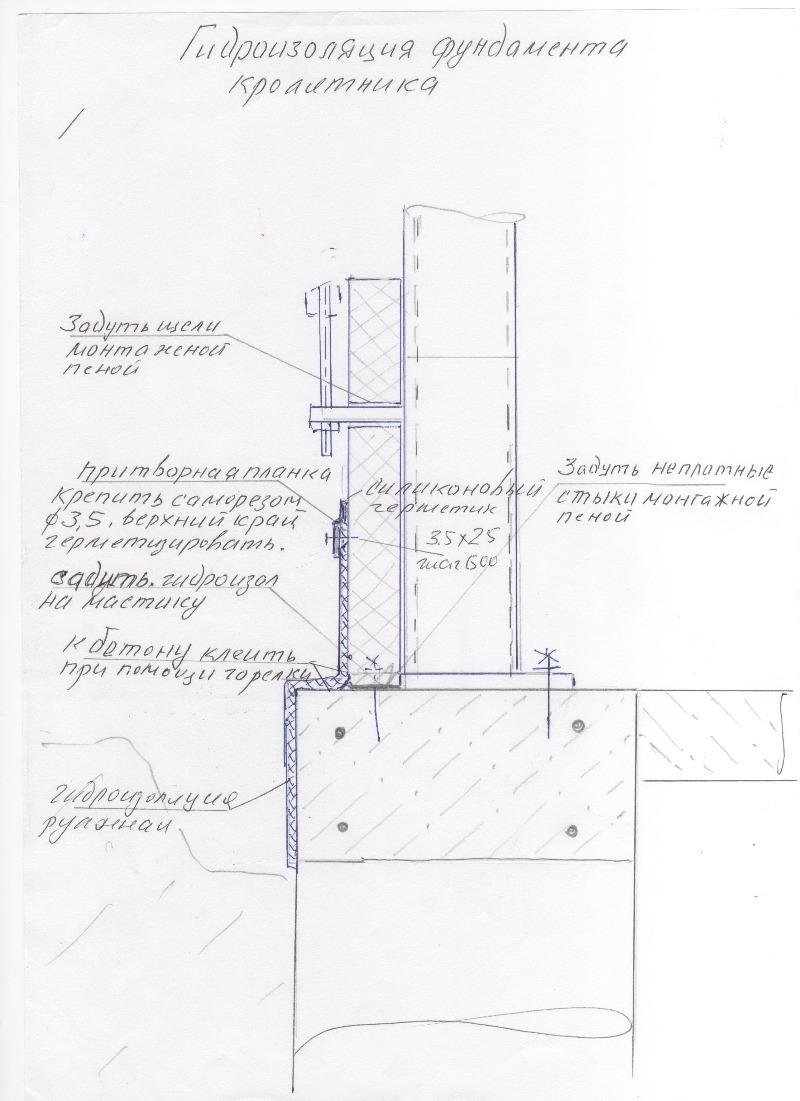 Гидроизоляция фундамента
кроалтника
Задуть щели
монтаженой
пеной
притворная планка
крепить саморезом
ф3,5, верхний край
герметизировать.
силиконовый
герметик
3.5х25
шаг 500
Задуть неплотные
стыки монтажной
пеной
задуть. гидроизол
на мастику
к бетону клеить
при помощи горелки
гидроизоляция